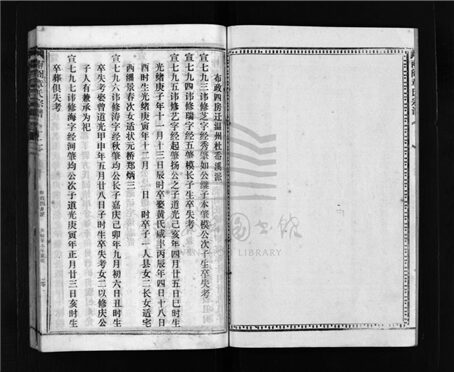 布政四房迁温州杜岙溪派
宣七九三讳修芝字经秀肇如公继子本肇模公次子生卒失考
宣七九四讳修瑞字经五肇模长子生卒失考
宣七九五讳修艺字经起肇扬公之子道光己亥年四月廿五日巳时生
光绪庚子年十一月十三日辰时卒娶黄氏咸丰丙辰年四月十八日
酉时生光绪庚寅年十二月 日 时卒子一人县女二长女适宅
西潘景春次女适状元桥郑炳三
宣七九六讳修涛字经秋肇均公长子嘉庆己卯年九月初六日丑时生
卒失考娶曾道光甲申年五月廿八日子时生卒失考女二以修庆公
子人有兼承为祀
宣七九七讳修海字经河肇均公次子道光庚寅年正月廿三日亥时生
卒葬俱失考
LIBRARY